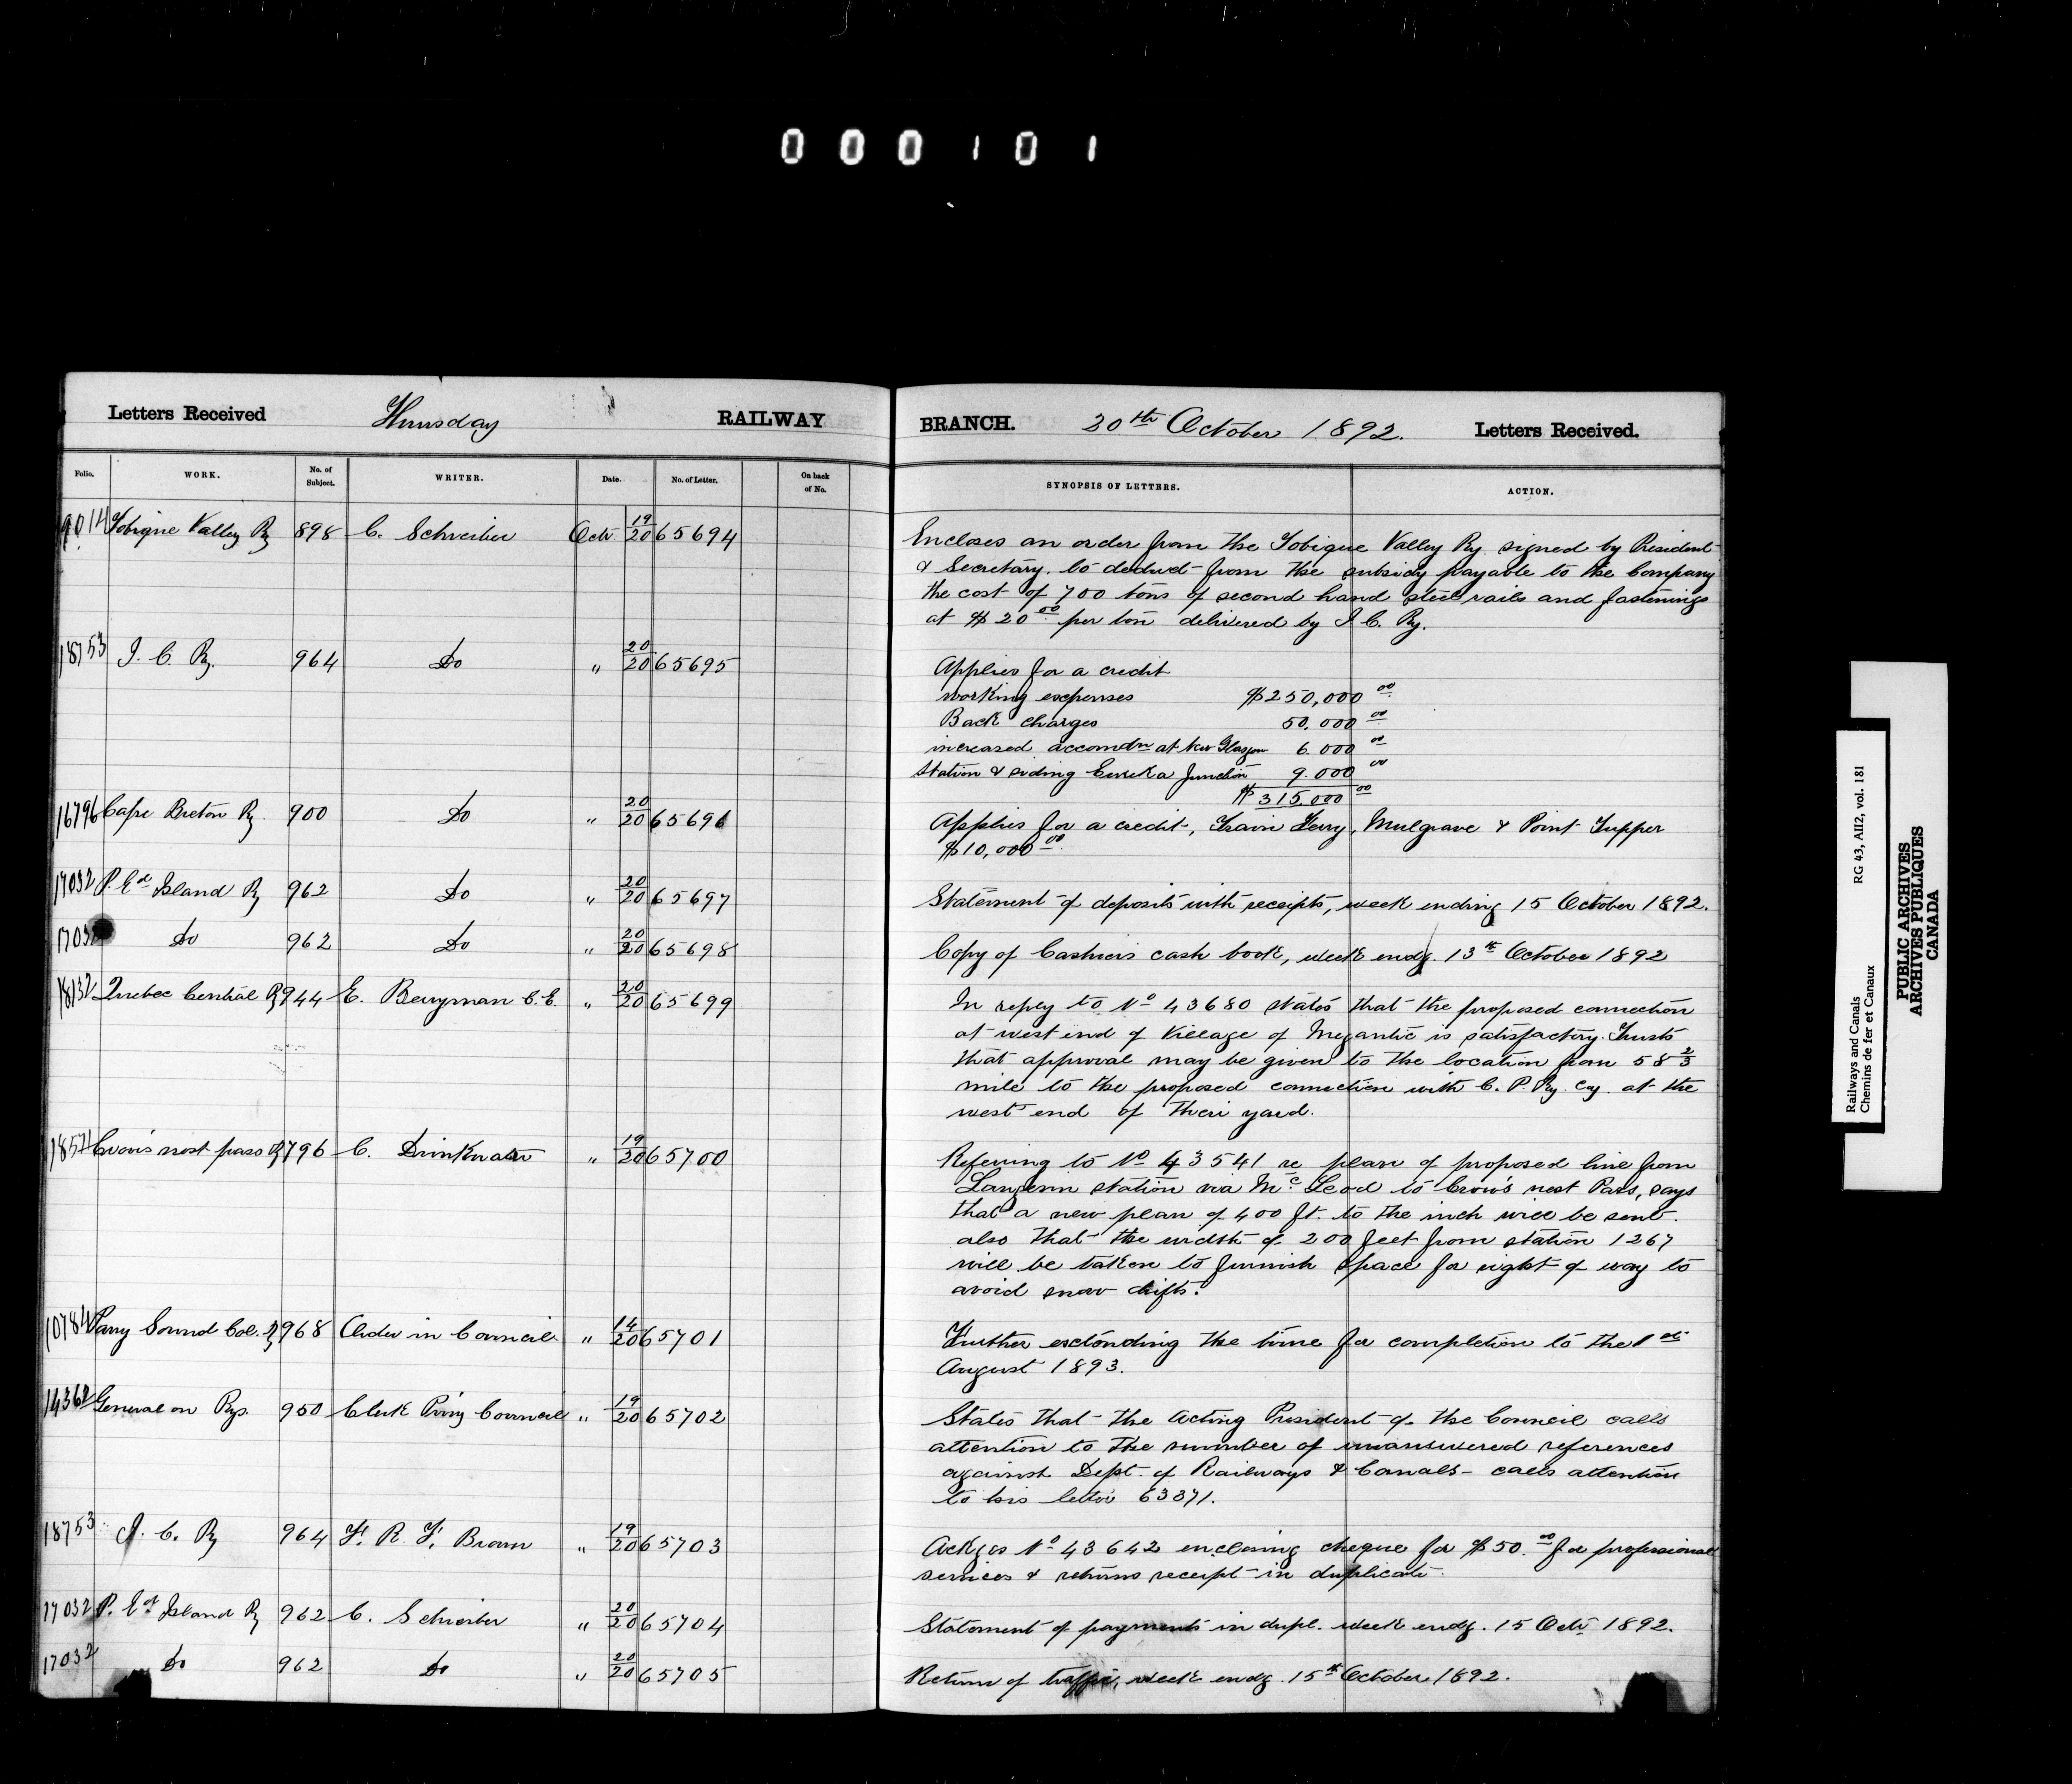 000101
Letters Received Thursday RAILWAY
Folio. WORK. No. of Subject. WRITER. Date. No. of Letter. On back of No.
Tobique Valley Ry 898 C. Schreiber Octr 19/20 65694
18753 I. C. Ry. 964 Do " 20/20 65695
16796 Cape Breton Ry. 900 Do " 20/20 65696
17032 P. Ed Island Ry 962 Do " 20/20 65697
Do 962 Do " 20/20 65698
18132 Quebec Central Ry 944 E. Berryman C.E. " 20/20 65699
Crow's nest pass Ry 796 C. Drinkwater " 19/20 65700
Parry Sound Col. Ry 968 Order in Council " 14/20 65701
14362 General on Rys. 950 Clerk Privy Council " 19/20 65702
18753 I. C. Ry 964 F. R. F. Brown " 19/20 65703
17032 P. Ed Island Ry 962 C. Schreiber " 20/20 65704
17032 Do 962 Do " 20/20 65705
BRANCH. 20th October 1892. Letters Received.
SYNOPSIS OF LETTERS. ACTION.
Encloses an order from the Tobique Valley Ry. signed by President
& Secretary, to deduct from the subsidy payable to the Company
the cost of 700 tons of second hand steel rails and fastenings
at $20.00 per ton delivered by I. C. Ry.
Applies for a credit
working expenses $250,000 00
Back charges 50.000 00
increased accomdn at New Glasgow 6.000 00
Station & siding Eureka Junction 9.000 00
$315.000 00
Applies for a credit, Train Ferry, Mulgrave & Point Tupper
$10,000 00
Statement of deposits with receipts, week ending 15 October 1892.
Copy of Cashiers cash book, week endg. 13th October 1892
In reply to No 43680 states that the proposed connection
at west end of Village of Megantic is satisfactory. Trusts
that approval may be given to the location from 58 2/3
mile to the proposed connection with C. P. Ry. Coy. at the
west end of their yard.
Referring to No 43541 re plan of proposed line from
Langevin station via McLeod to Crow's nest Pass, says
that a new plan of 400 ft. to the inch will be sent.
also that the width of 200 feet from station 1267
will be taken to furnish space for right of way to
avoid snow drifts.
Further extending the time for completion to the 1st
August 1893.
States that the Acting President of the Council calls
attention to the number of unanswered references
against Dept. of Railways & Canals - calls attention
to his letter 63371.
Ackges No 43642 enclosing cheque for $50.00 for professional
services & returns receipt in duplicate.
Statement of payments in dupl. week endg. 15 Octr 1892.
Return of traffic, week endg. 15th October 1892.
Railways and Canals RG 43, AII2, vol. 181
Chemins de fer et Canaux
PUBLIC ARCHIVES
ARCHIVES PUBLIQUES
CANADA